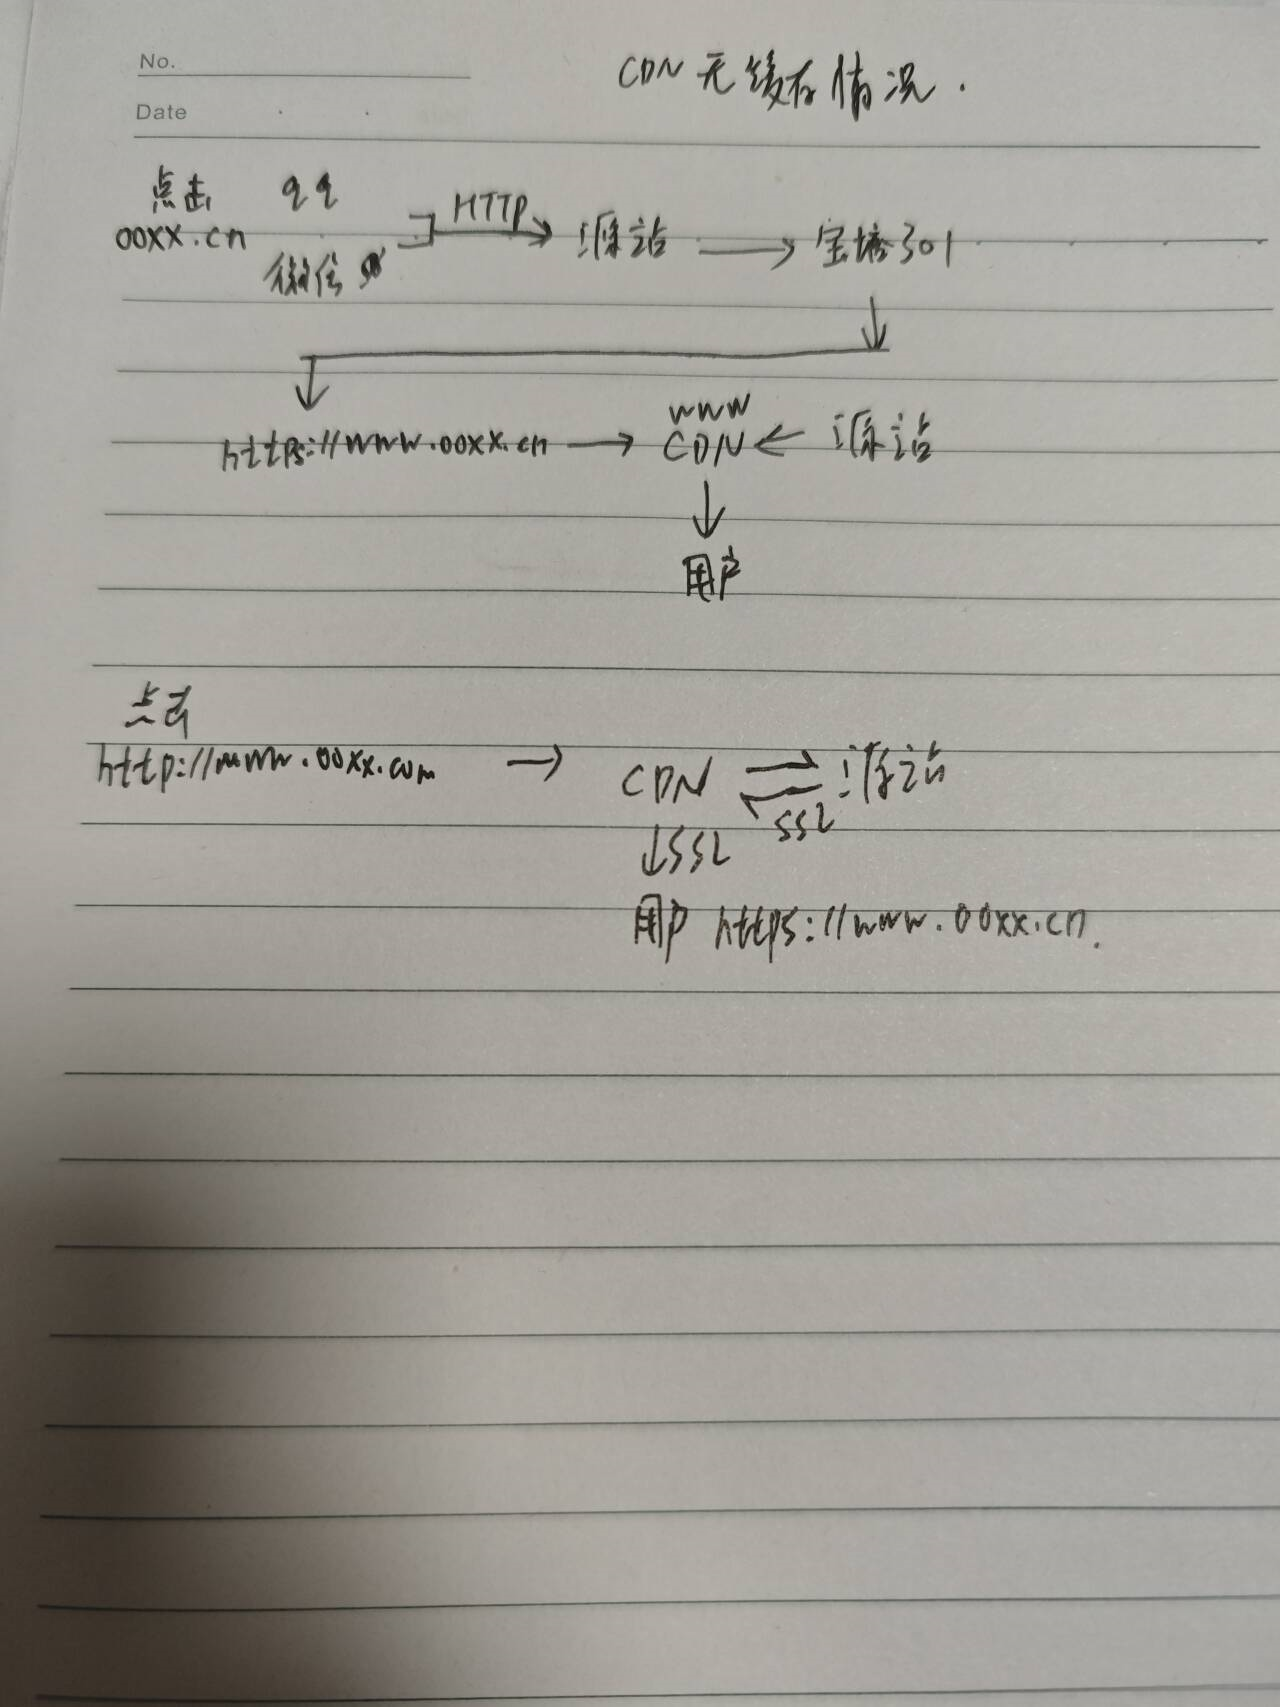 No.
CDN 无缓存情况.
Date
点击 qq
ooxx.cn HTTP 源站 宝塔301
微信
https://www.ooxx.cn www CDN 源站
用户
点击
http://www.ooxx.com CDN 源站
SSL
SSL
用户 https://www.ooxx.cn.